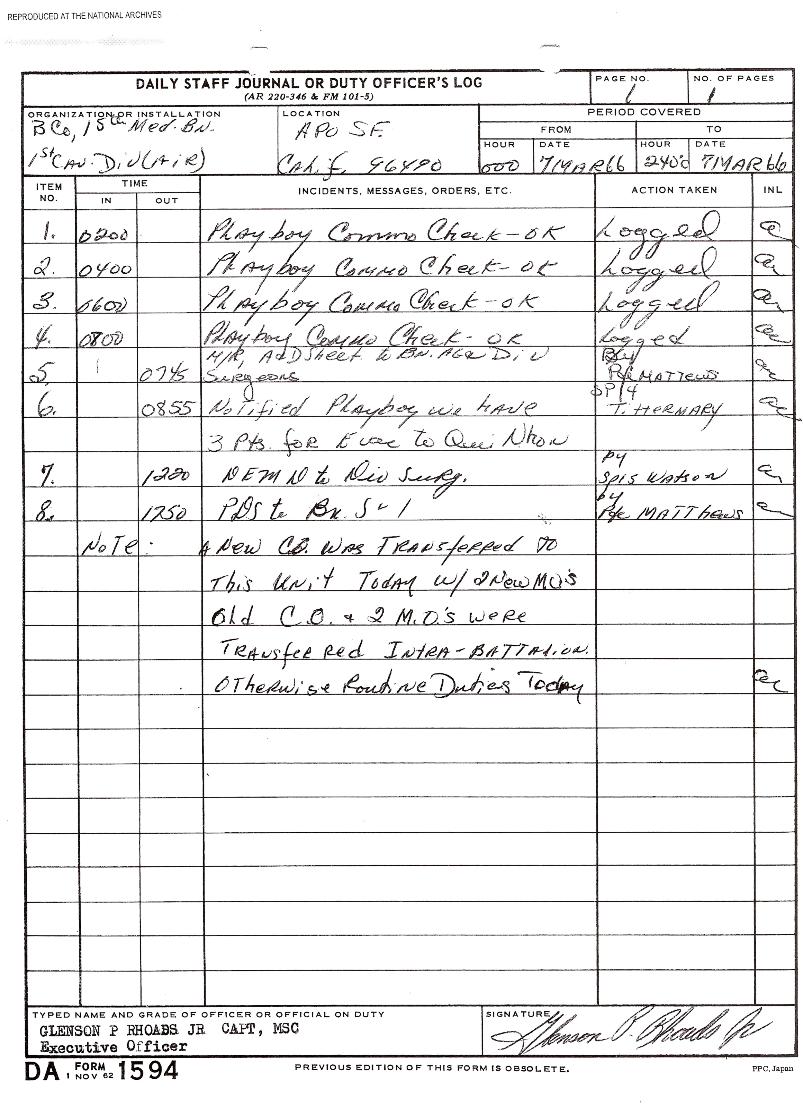 REPRODUCED AT THE NATIONAL ARCHIVES
DAILY STAFF JOURNAL OR DUTY OFFICER'S LOG
(AR 220-346 & FM 101-5)
PAGE NO.
1
NO. OF PAGES
1
ORGANIZATION OR INSTALLATION
B Co, 15th Med. Bn.
1st CAV. DIV (AIR)
LOCATION
APO SF.
Calif. 96490
PERIOD COVERED
FROM
TO
HOUR
DATE
HOUR
DATE
000
7 MAR 66
2400
7 MAR 66
ITEM NO.
TIME
IN
OUT
INCIDENTS, MESSAGES, ORDERS, ETC.
ACTION TAKEN
INL
1. 0200 Playboy Commo Check - OK Logged
2. 0400 Playboy Commo Check - OK Logged
3. 0600 Playboy Commo Check - OK Logged
4. 0800 Playboy Commo Check - OK Logged
M/R, A&D Sheet to Bn. AG& Div By
5. 0745 Surgeons Pfc MATTEWS
SP/4
6. 0855 Notified Playboy we have T. HERMARY
3 Pts. for Evac to Qui Nhon
by
7. 1220 to Div Surg. Sp5 WATSON
by
8. 1750 PDS to Bn. S-1 Pfc MATTHEWS
NOTE: A New CO. WAS TRANSferred to
This Unit Today w/ 2 New MO's
Old C.O. + 2 M.O.'s were
TRANSferred INTRA-BATTALION.
Otherwise Routine Duties Today
TYPED NAME AND GRADE OF OFFICER OR OFFICIAL ON DUTY
GLENSON P RHOABS JR CAPT, MSC
Executive Officer
SIGNATURE
Glenson P. Rhoads Jr
DA FORM 1 NOV 62 1594
PREVIOUS EDITION OF THIS FORM IS OBSOLETE.
PPC, Japan